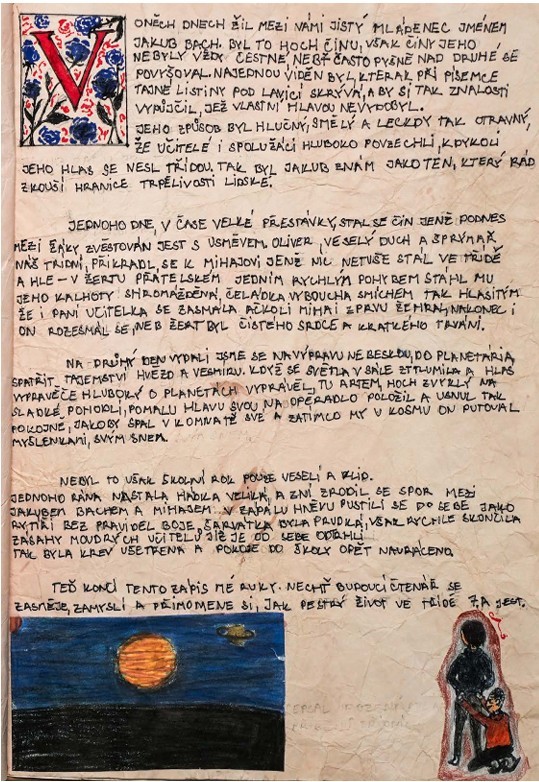 V ONĚCH DNECH ŽIL MEZI NÁMI JISTÝ MLÁDENEC JMÉNEM
JAKUB BACH. BYL TO HOCH ČINU, VŠAK ČINY JEHO
NEBYLY VŽDY ČESTNÉ, NEBŤ ČASTO PYŠNĚ NAD DRUHÉ SE
POVYŠOVAL. NAJEDNOU VIDĚN BYL, KTERAK PŘI PÍSEMCE
TAJNÉ LISTINY POD LAVICÍ SKRÝVÁ, ABY SI TAK ZNALOSTI
VYPŮJČIL, JEŽ VLASTNÍ HLAVOU NEVYDOBYL.
JEHO ZPŮSOB BYL HLUČNÝ, SMĚLÝ A LECKDY TAK OTRAVNÝ,
ŽE UČITELÉ I SPOLUŽÁCI HLUBOKO POVZECHLI, KDYKOLI
JEHO HLAS SE NESL TŘÍDOU. TAK BYL JAKUB ZNÁM JAKO TEN, KTERÝ RÁD
ZKOUŠÍ HRANICE TRPĚLIVOSTI LIDSKÉ.
JEDNOHO DNE, V ČASE VELKÉ PŘESTÁVKY, STAL SE ČIN JENŽ PODNES
MEZI ŽÁKY ZVĚSTOVÁN JEST S ÚSMĚVEM. OLIVER, VESELÝ DUCH A ŠPRÝMAŘ
NÁŠ TŘÍDNÍ, PŘIKRADL SE K MIHAJOVI JENŽ NIC NETUŠE STÁL VE TŘÍDĚ
A HLE – V ŽERTU PŘÁTELSKÉM JEDNÍM RYCHLÝM POHYBEM STÁHL MU
JEHO KALHOTY. SHROMÁŽDĚNÁ ČELÁDKA VYBOUCHA SMÍCHEM TAK HLASITÝM
ŽE I PANÍ UČITELKA SE ZASMÁLA AČKOLI MIHAI ZPRVU ŽEHRAL, NAKONEC I
ON ROZESMÁL SE, NEB ŽERT BYL ČISTÉHO SRDCE A KRÁTKÉHO TRVÁNÍ.
NA DRUHÝ DEN VYDALI JSME SE NA VÝPRAVU NEBESKOU, DO PLANETÁRIA,
SPATŘIT TAJEMSTVÍ HVĚZD A VESMÍRU. KDYŽ SE SVĚTLA V SÁLE ZTLUMILA A HLAS
VYPRAVĚČE HLUBOKÝ O PLANETÁCH VYPRÁVĚL, TU ARTEM, HOCH ZVYKLÝ NA
SLADKÉ POHODLÍ, POMALU HLAVU SVOU NA OPĚRADLO POLOŽIL A USNUL TAK
POKOJNĚ, JAKOBY SPAL V KOMNATĚ SVÉ A ZATÍMCO MY V KOSMU ON PUTOVAL
MYŠLENKAMI, SVÝM SNEM.
NEBYL TO VŠAK ŠKOLNÍ ROK POUZE VESELÍ A KLID.
JEDNOHO RÁNA NASTALA HÁDKA VELIKÁ, A Z NÍ ZRODIL SE SPOR MEZI
JAKUBEM BACHEM A MIHAJEM. V ZÁPALU HNĚVU PUSTILI SE DO SEBE JAKO
RYTÍŘI BEZ PRAVIDEL BOJE, ŠARVÁTKA BYLA PRUDKÁ, VŠAK RYCHLE SKONČILA
ZÁSAHY MOUDRÝCH UČITELŮ JIŽ JE OD SEBE ODTRHLI
TAK BYLA KREV UŠETŘENA A POKOJ DO ŠKOLY OPĚT NAVRÁCEN.
TEĎ KONČÍ TENTO ZÁPIS MÉ RUKY. NECHŤ BUDOUCÍ ČTENÁŘ SE
ZASMĚJE, ZAMYSLÍ A PŘIPOMENE SI, JAK PESTRÝ ŽIVOT VE TŘÍDĚ 7.A JEST.